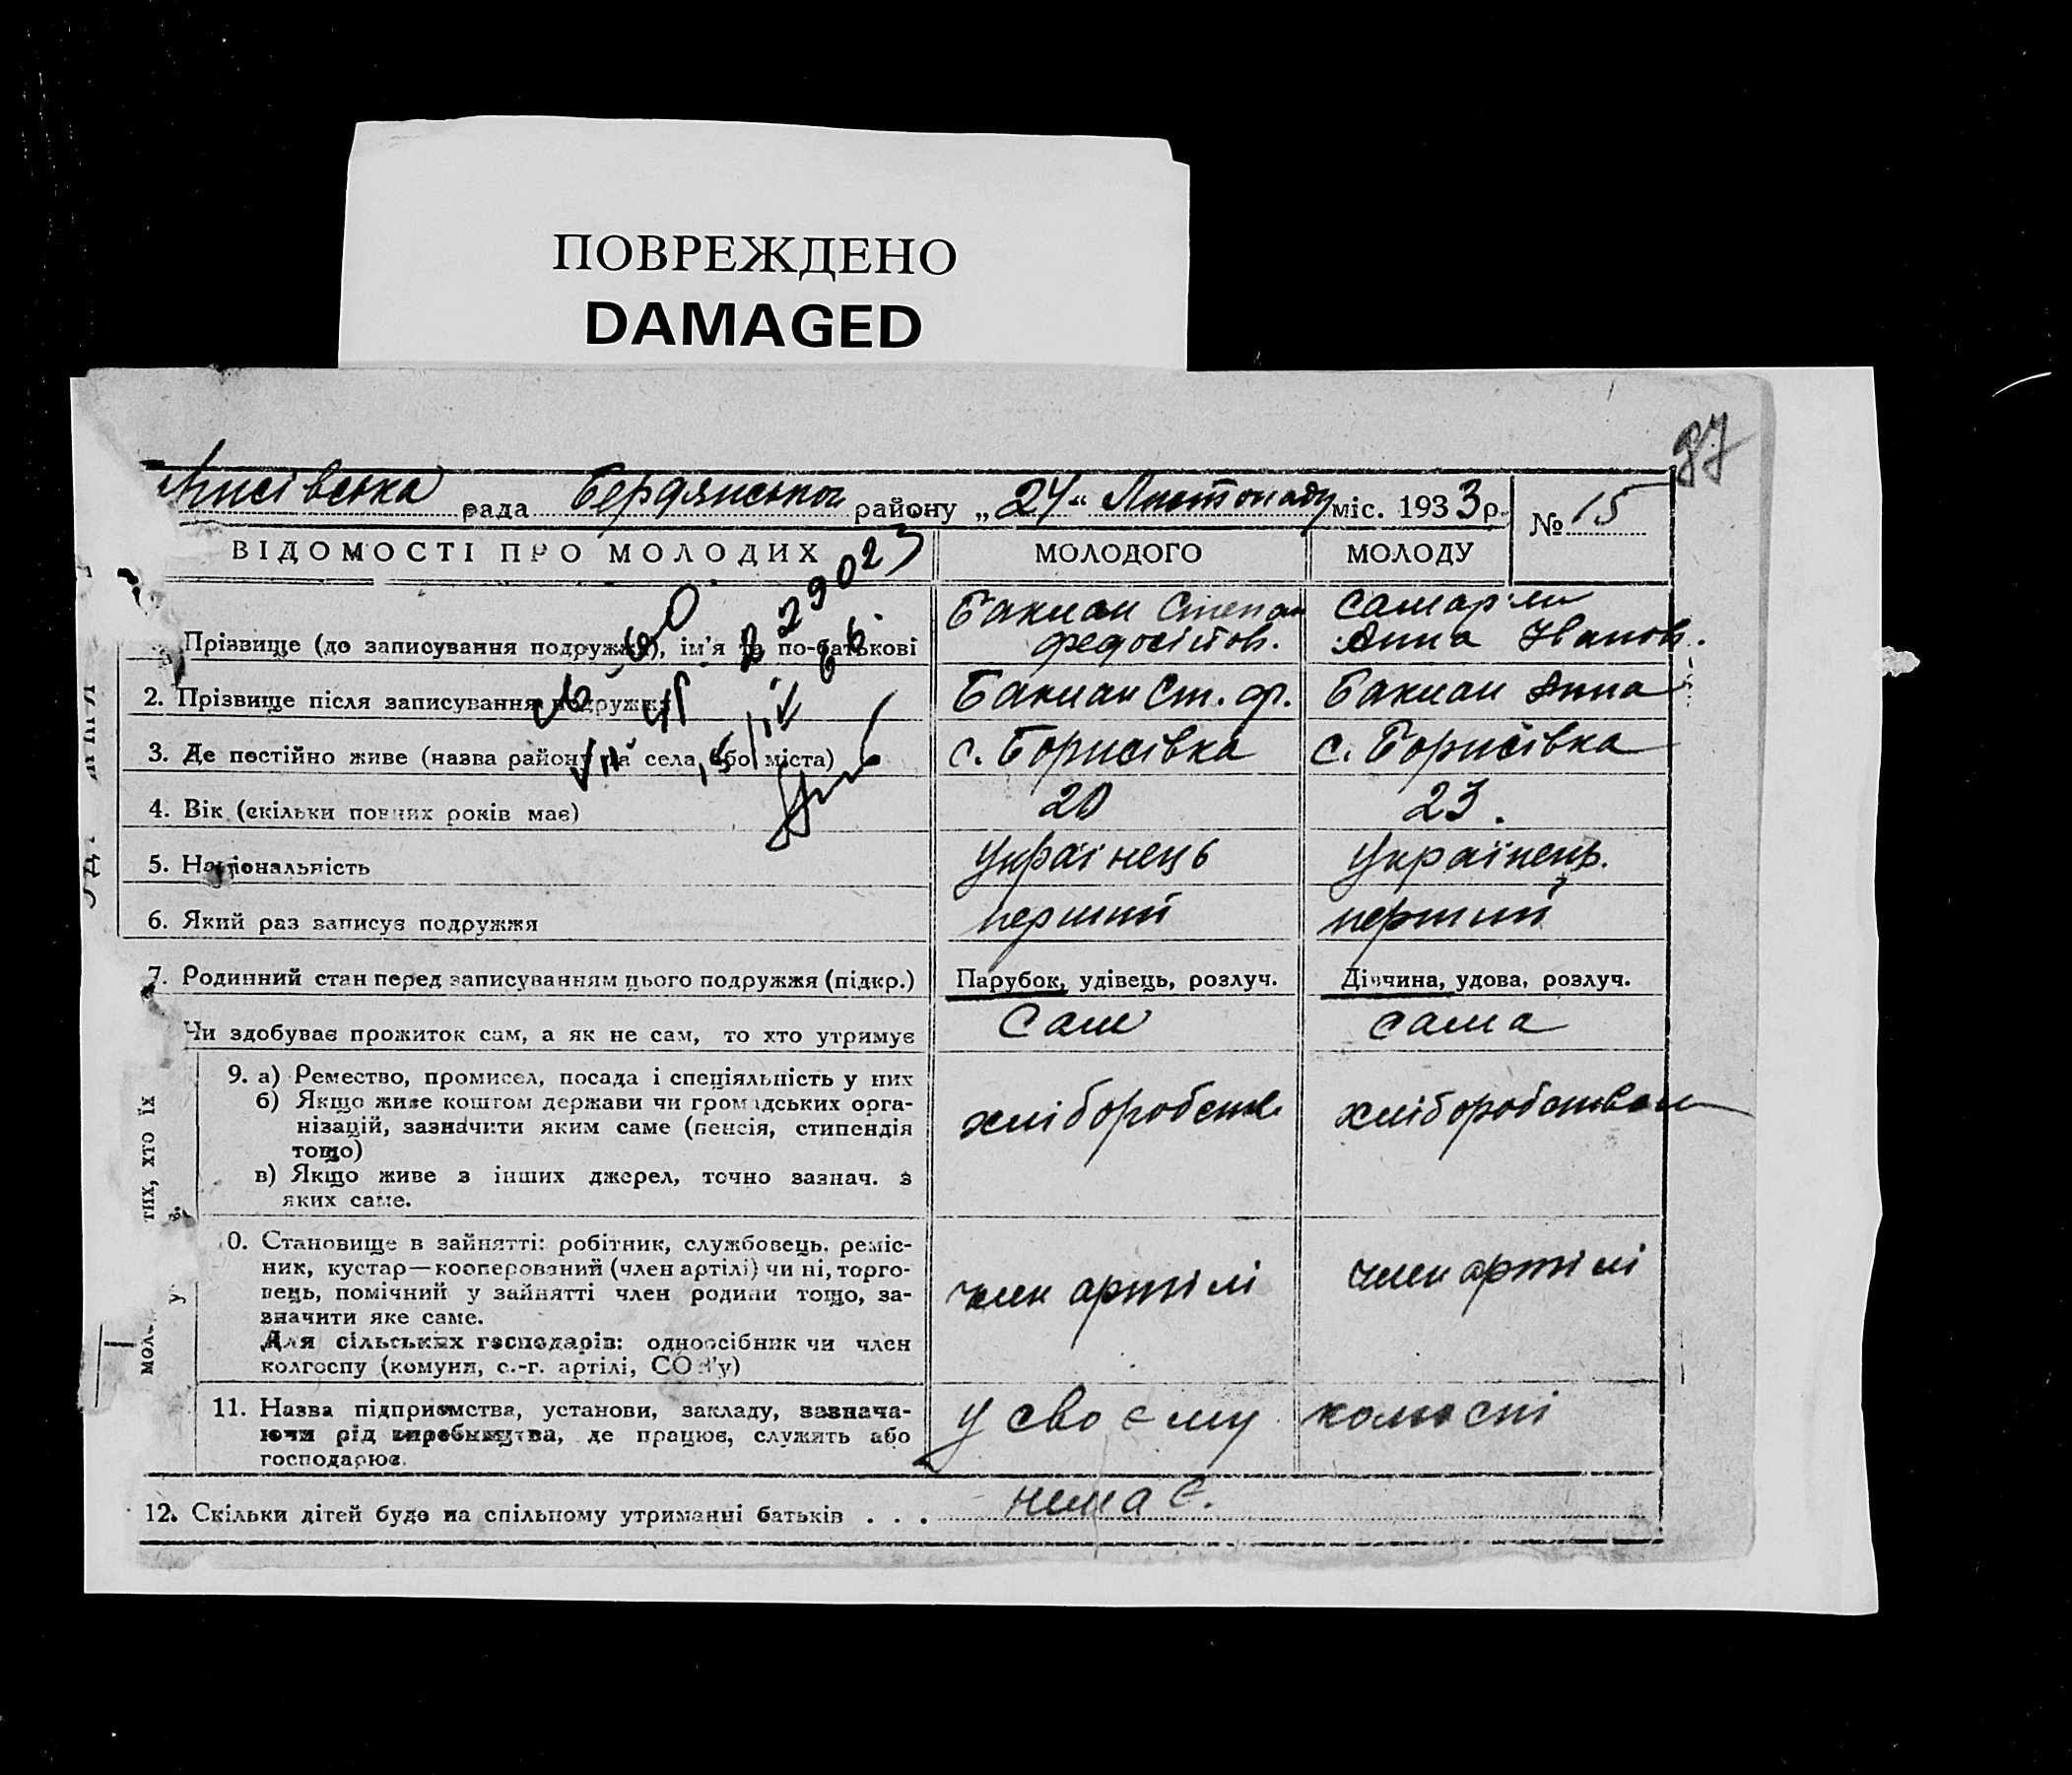 ПОВРЕЖДЕНО
DAMAGED
87
рада Бердянського району „24“ Листопаду міс. 1933 р. № 15
ВІДОМОСТІ ПРО МОЛОДИХ МОЛОДОГО МОЛОДУ
229023
Бакман Степан
Федосійов. Анна Іванов.
Прізвище (до записування подружжя), ім'я та по-батькові
2. Прізвище після записування подружжя Бакман Ст. Ф. Бакман Анна
3. Де постійно живе (назва району та села, або міста) с. Борисівка с. Борисівка
4. Вік (скільки повних років має) 20 23.
5. Національність Українець Українець.
6. Який раз записує подружжя перший перший
7. Родинний стан перед записуванням цього подружжя (підкр.) Парубок, удівець, розлуч. Дівчина, удова, розлуч.
Чи здобуває прожиток сам, а як не сам, то хто утримує сам сама
тих, хто їх
9. а) Ремество, промисел, посада і спеціяльність у них
б) Якщо живе коштом держави чи громадських орга-
нізацій, зазначити яким саме (пенсія, стипендія
тощо)
хліборобств. хліборобством
в) Якщо живе з інших джерел, точно зазнач. з
яких саме.
0. Становище в зайнятті: робітник, службовець, реміс-
ник, кустар—кооперований (член артілі) чи ні, торго-
вець, помічний у зайнятті член родини тощо, за-
значити яке саме.
член артілі член артілі
Для сільських господарів: одноосібник чи член
колгоспу (комуни, с.-г. артілі, СОЗ'у)
11. Назва підприємства, установи, закладу, зазнача-
ючи рід виробництва, де працює, служить або
господарює.
У своєму колгоспі
12. Скільки дітей буде на спільному утриманні батьків . . . немає.